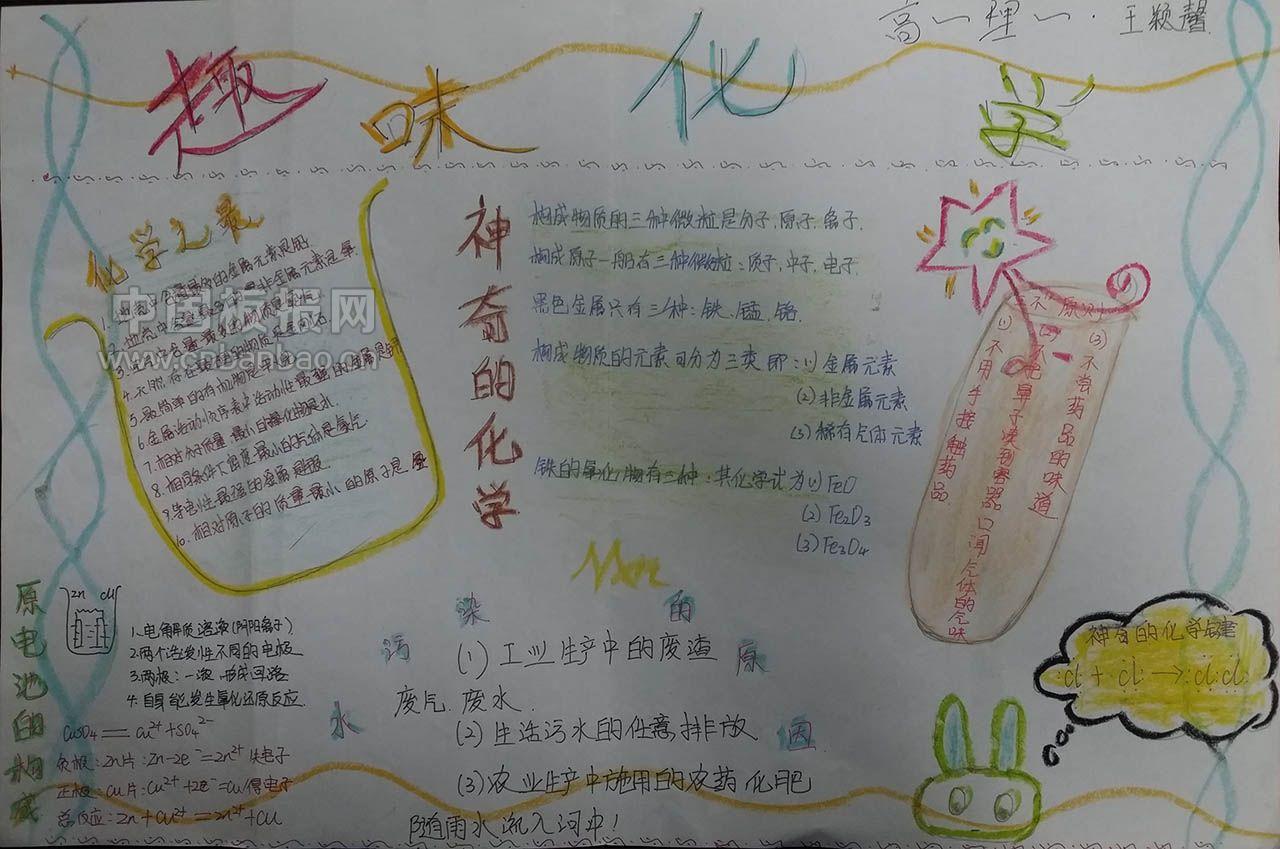 高一理一·王颖馨
趣味化学
化学之最
1.地壳中含量最多的金属元素是铝
2.地壳中含量最多的非金属元素是氧
3.空气中含量最多的物质是氮气
4.天然存在最硬的物质是金刚石
5.最简单的有机物是甲烷
6.金属活动顺序表中活动性最强的金属是钾
7.相对分子质量最小的氧化物是水
8.相同条件下密度最小的气体是氢气
9.导电性最强的金属是银
10.相对原子的质量最小的原子是氢
中国板报网
www.cnbanbao.cn
神奇的化学
构成物质的三种微粒是分子.原子.离子.
构成原子一般有三种微粒:质子,中子,电子.
黑色金属只有三种:铁、锰、铬.
构成物质的元素可分为三类即:(1)金属元素
(2)非金属元素
(3)稀有气体元素
铁的氧化物有三种:其化学式为(1)FeO
(2)Fe2O3
(3)Fe3O4
三不原则
(1)不用手接触药品
(2)不把鼻子凑到容器口闻气体的气味
(3)不尝药品的味道
原电池的构成
Zn Cu
1.电解质溶液(阴阳离子)
2.两个活发性不同的电极
3.两极:一液 形成回路
4.自身能发生氧化还原反应.
CuSO4＝Cu2++SO42-
负极:Zn片:Zn-2e-=Zn2+失电子
正极:Cu片:Cu2++2e-=Cu得电子
总反应:Zn+Cu2+=Zn2++Cu
水污染的原因
(1)工业生产中的废渣
废气.废水.
(2)生活污水的任意排放
(3)农业生产中施用的农药化肥
随雨水流入河中!
神奇的化学键
:Cl·+·Cl:→:Cl:Cl: